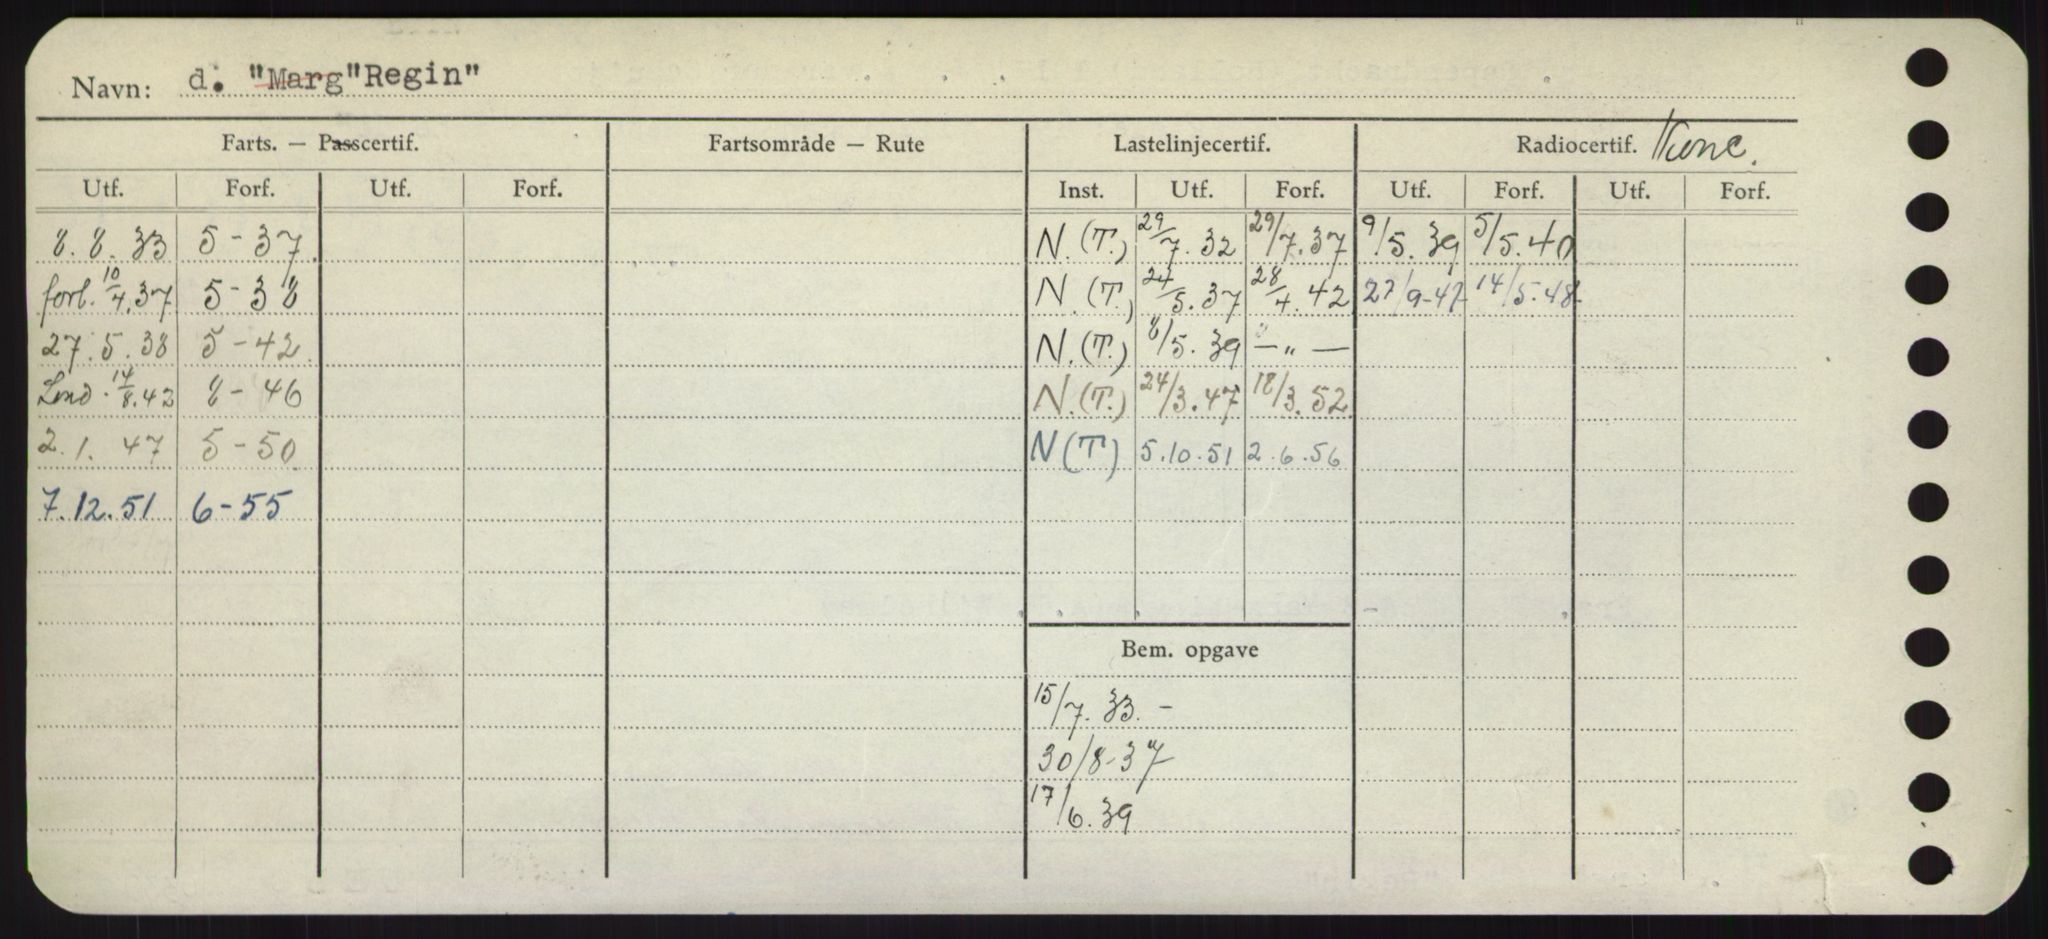 Navn: d. "Marg"Regin"
Farts. — Passcertif. Fartsområde — Rute Lastelinjecertif. Radiocertif.
Utf. Forf. Utf. Forf. Inst. Utf. Forf. Utf. Forf. Utf. Forf.
8.8.33 5-37 N.(T.) 29/7.32 29/7.37 9/5.39 5/5.40
forl. 10/4.37 5-38 N.(T.) 24/5.37 28/4.42 27/9-47 14/5.48
27.5.38 5-42 N.(T.) 8/5.39 — " —
Lond. 14/8.42 8-46 N.(T.) 24/3.47 18/3.52
2.1.47 5-50 N(T) 5.10.51 2.6.56
7.12.51 6-55
Bem. opgave
15/7.33.-
30/8-37
17/6.39